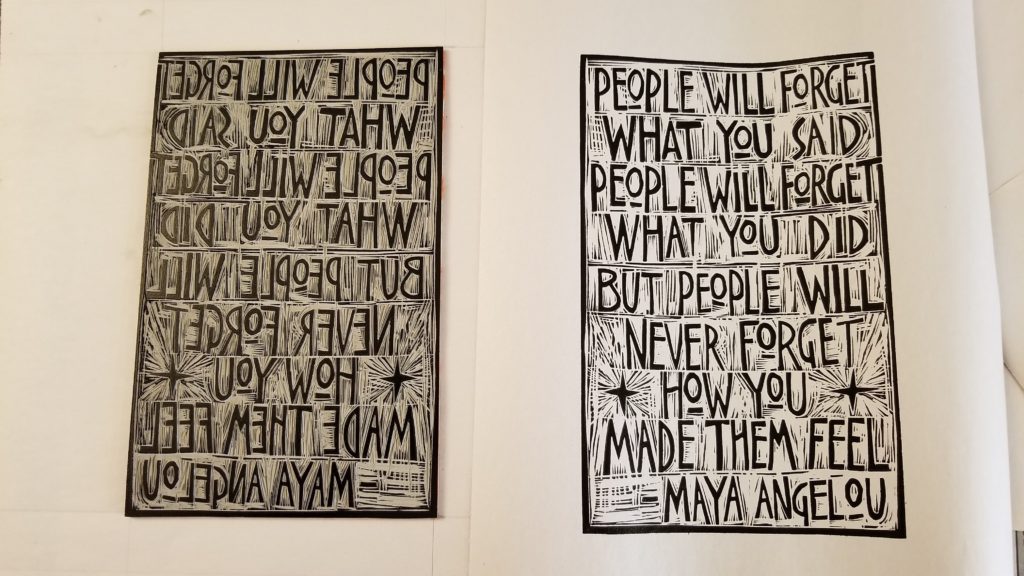 PEOPLE WILL FORGET
WHAT YOU SAID
PEOPLE WILL FORGET
WHAT YOU DID
BUT PEOPLE WILL
NEVER FORGET
HOW YOU
MADE THEM FEEL
MAYA ANGELOU
PEOPLE WILL FORGET
WHAT YOU SAID
PEOPLE WILL FORGET
WHAT YOU DID
BUT PEOPLE WILL
NEVER FORGET
HOW YOU
MADE THEM FEEL
MAYA ANGELOU